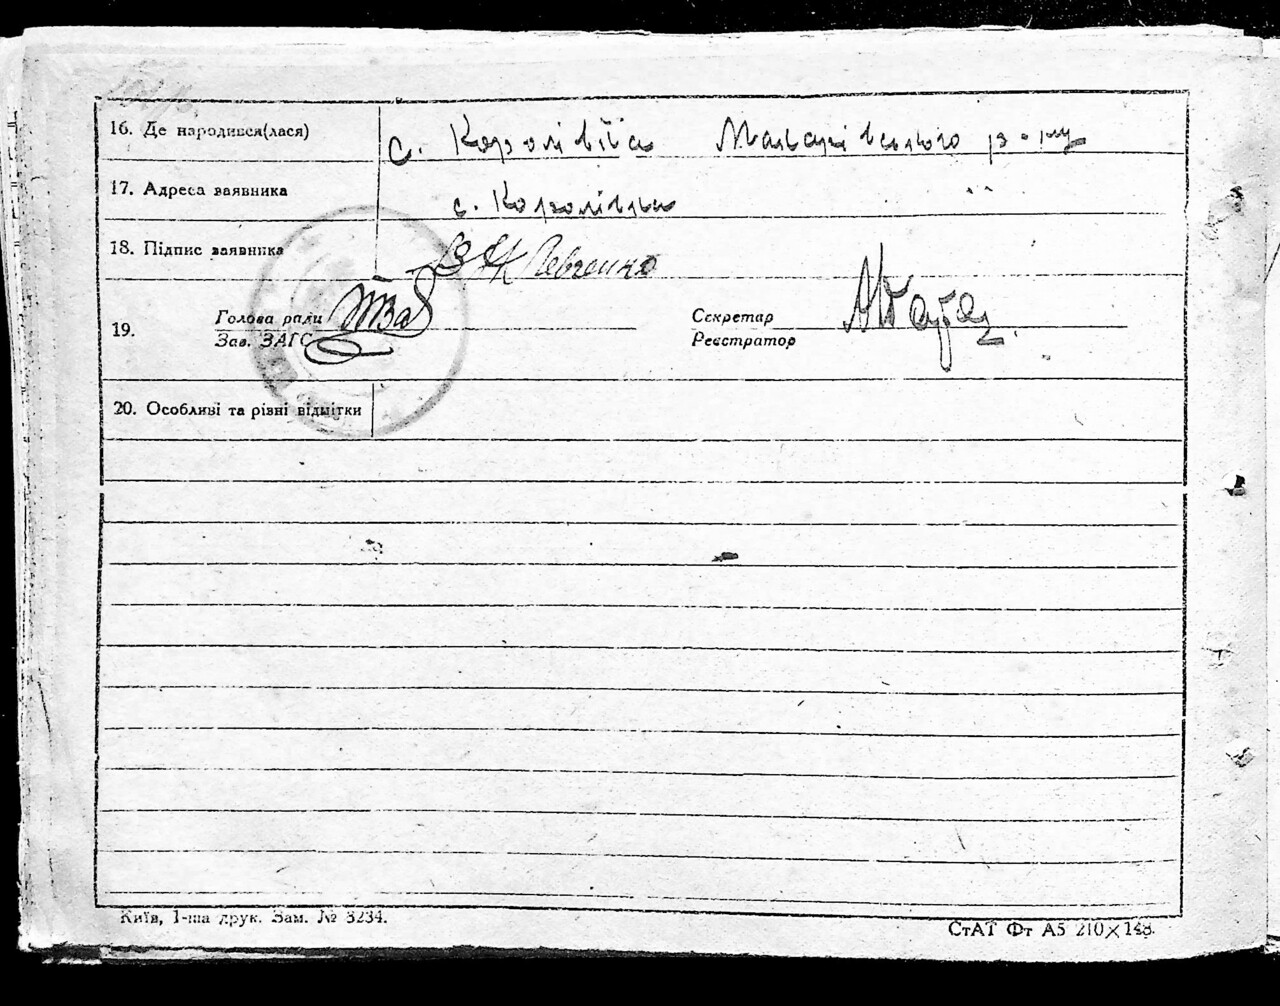 16. Де народився(лася) с. Королівка Макарівського р-ну
17. Адреса заявника с. Королівка
18. Підпис заявника Левченко
19. Голова ради
Зав. ЗАГС
Секретар
Реєстратор
20. Особливі та різні відмітки
Київ, 1-ша друк. Зам. № 3234.
СтАТ Фт А5 210×148